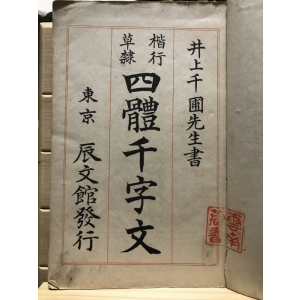 井上千圃先生書
楷行
草隸
四體千字文
東京 辰文館發行